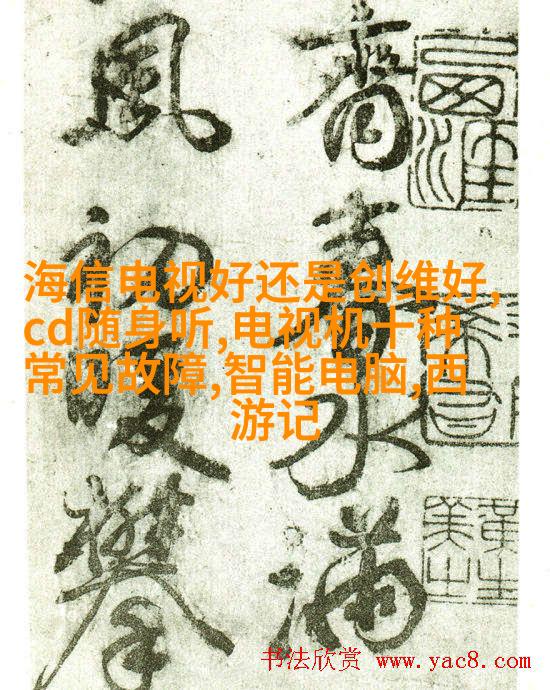 海信电视好还是创维好,
cd随身听,电视机十种
常见故障,智能电脑,西
游记
水滿
風初暖攀
书法欣赏 www.yac8.com